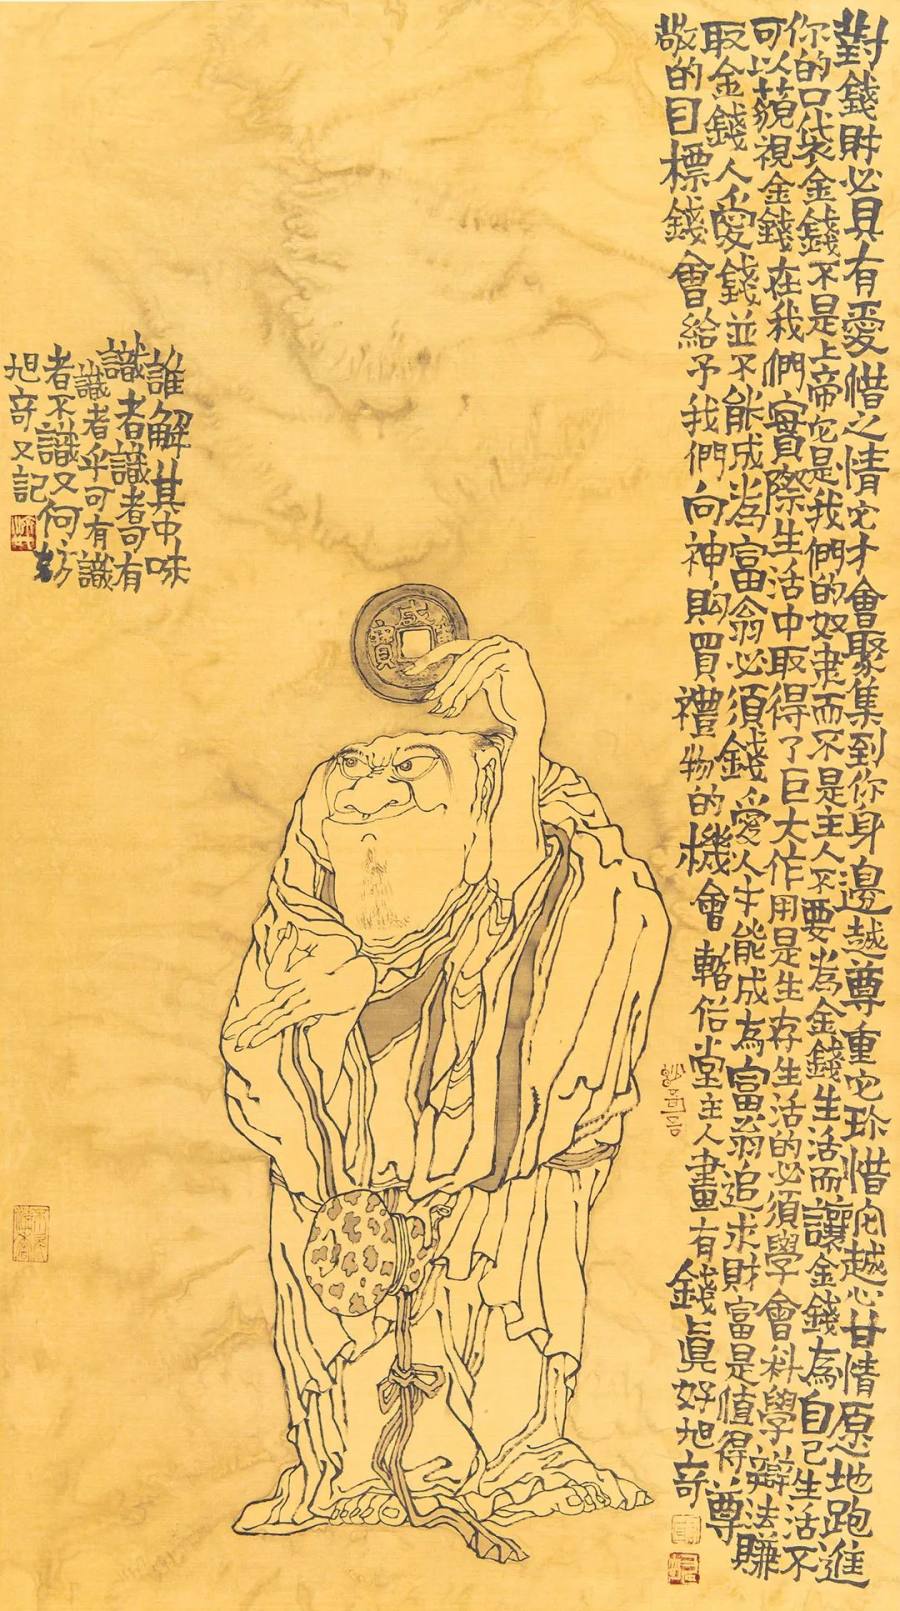 對錢財必具有愛惜之情它才會聚集到你身邊越尊重它珍惜它越心甘情愿地跑進
你的口袋金錢不是上帝它是我們的奴隶而不是主人不要為金錢生活而讓金錢為自己生活不
可以藐視金錢在我們實際生活中取得了巨大作用是生存生活的必須學會科學辯法賺
取金錢人愛錢並不能成為富翁必須錢愛人才能成為富翁追求財富是值得尊
敬的目標錢會給予我們向神購買禮物的機會暫俗堂主人畫有錢真好旭奇
咸
寶
誰解其中味
識者識者可有
識者乎可有識
者不識又何妨
旭奇又記